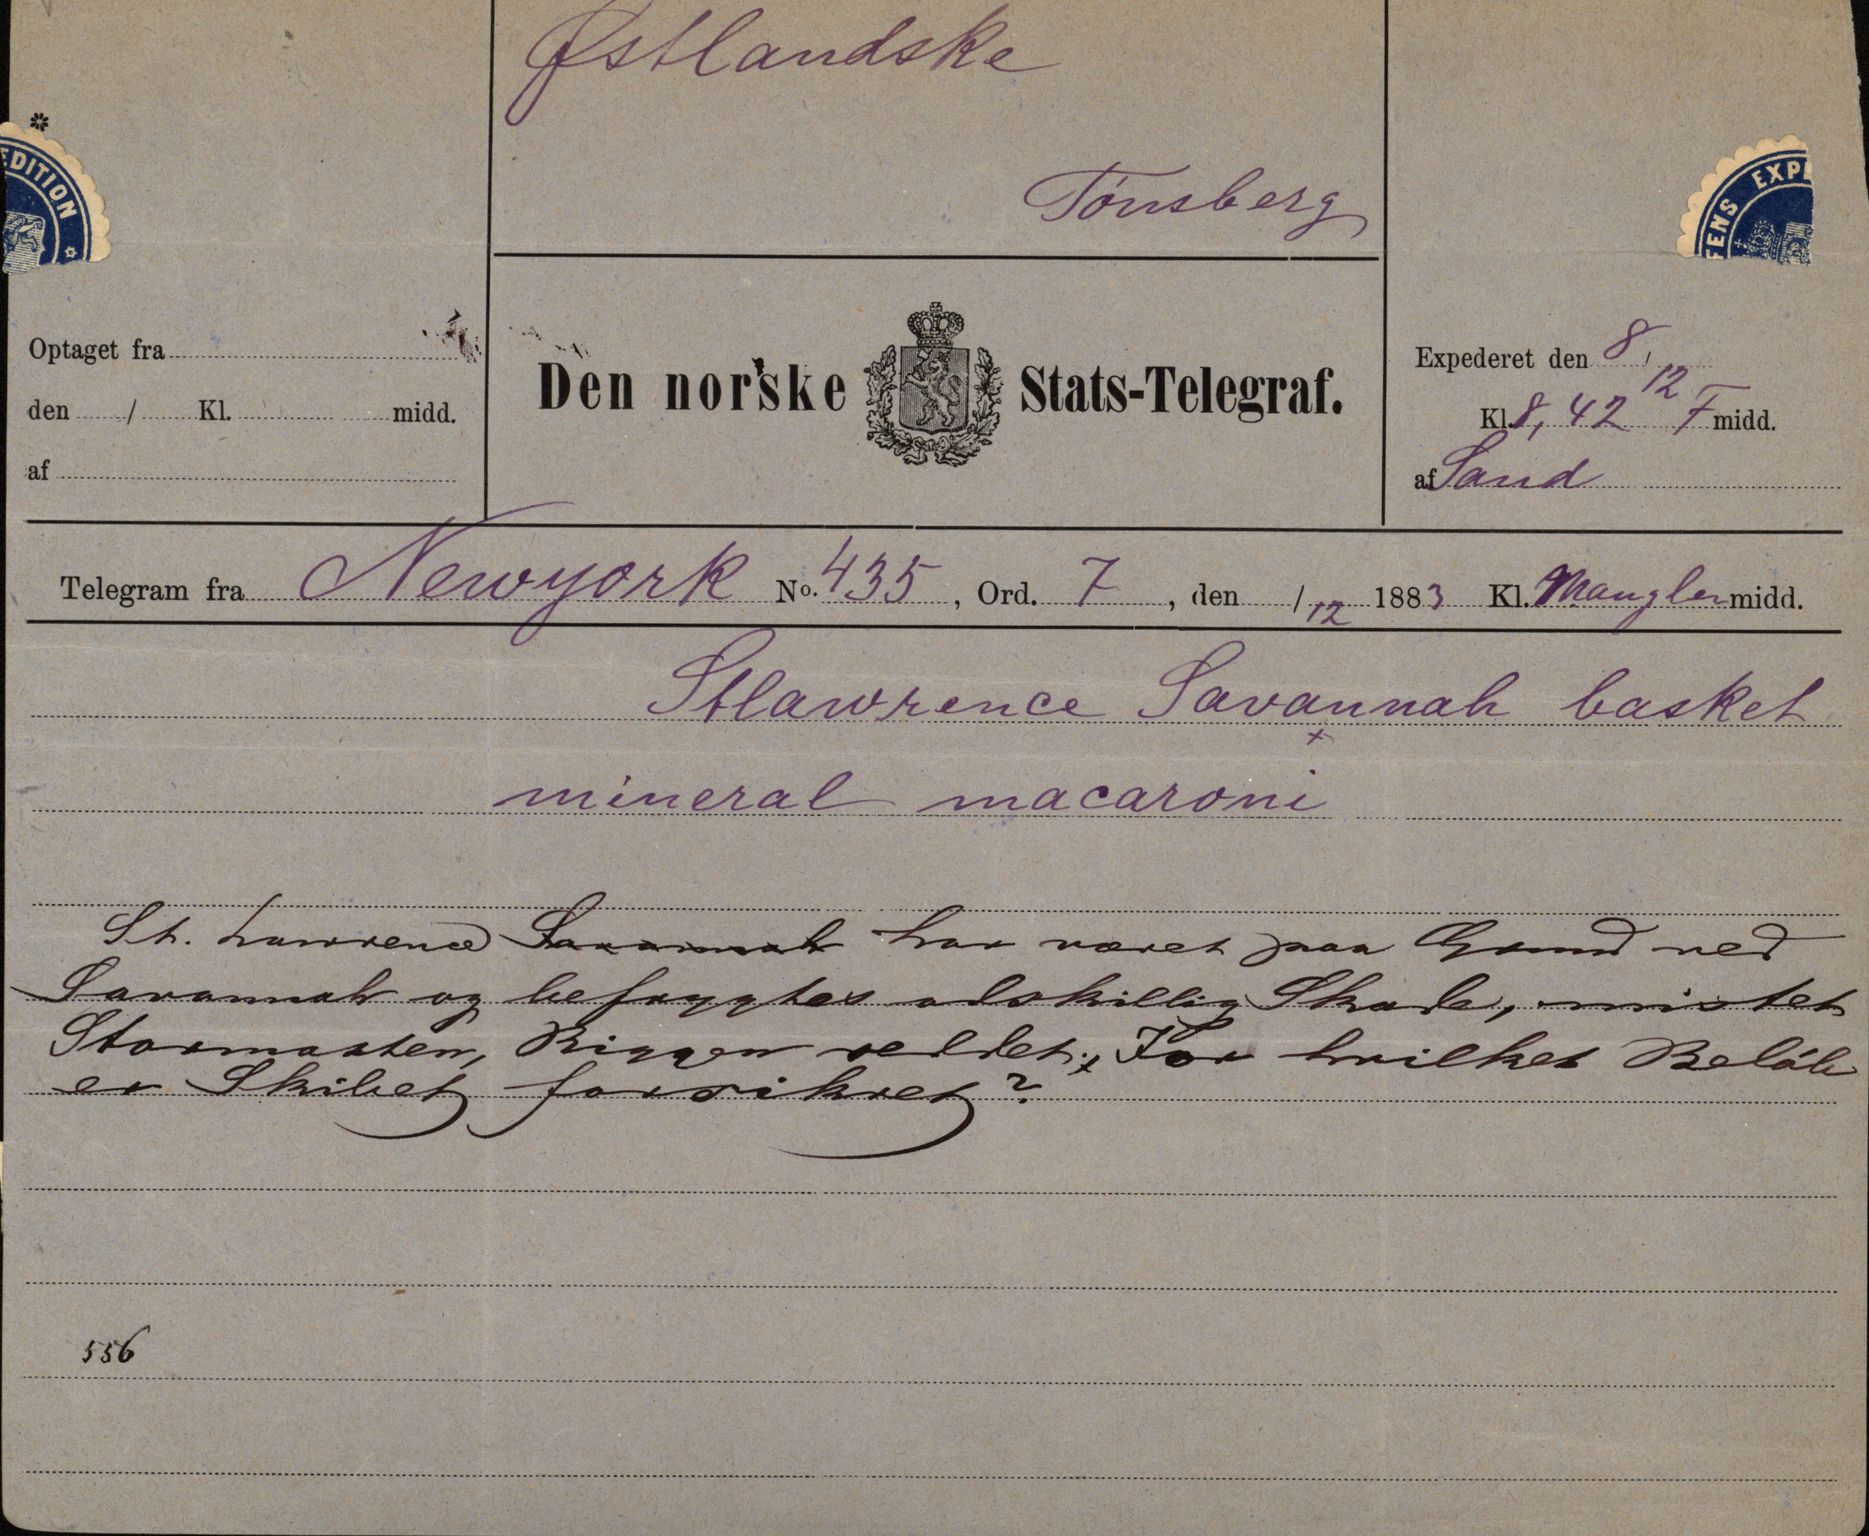 Østlandske
Tønsberg
EDITION
FENS EXPE
Optaget fra
den / Kl. midd.
af
Den norske Stats-Telegraf.
Expederet den 8/12
Kl. 8,42 F midd.
af Sand
Telegram fra Newyork No. 435, Ord. 7, den /12 1883 Kl. Mangler midd.
Stlawrence Savannah basket
mineral macaroni
St. Lawrence Savannah har været paa Grund ved
Savannah og befrygtes adskillig Skade, mistet
Stormasten, Riggen reddet. For hvilket Beløb
er Skibet forsikret?
556